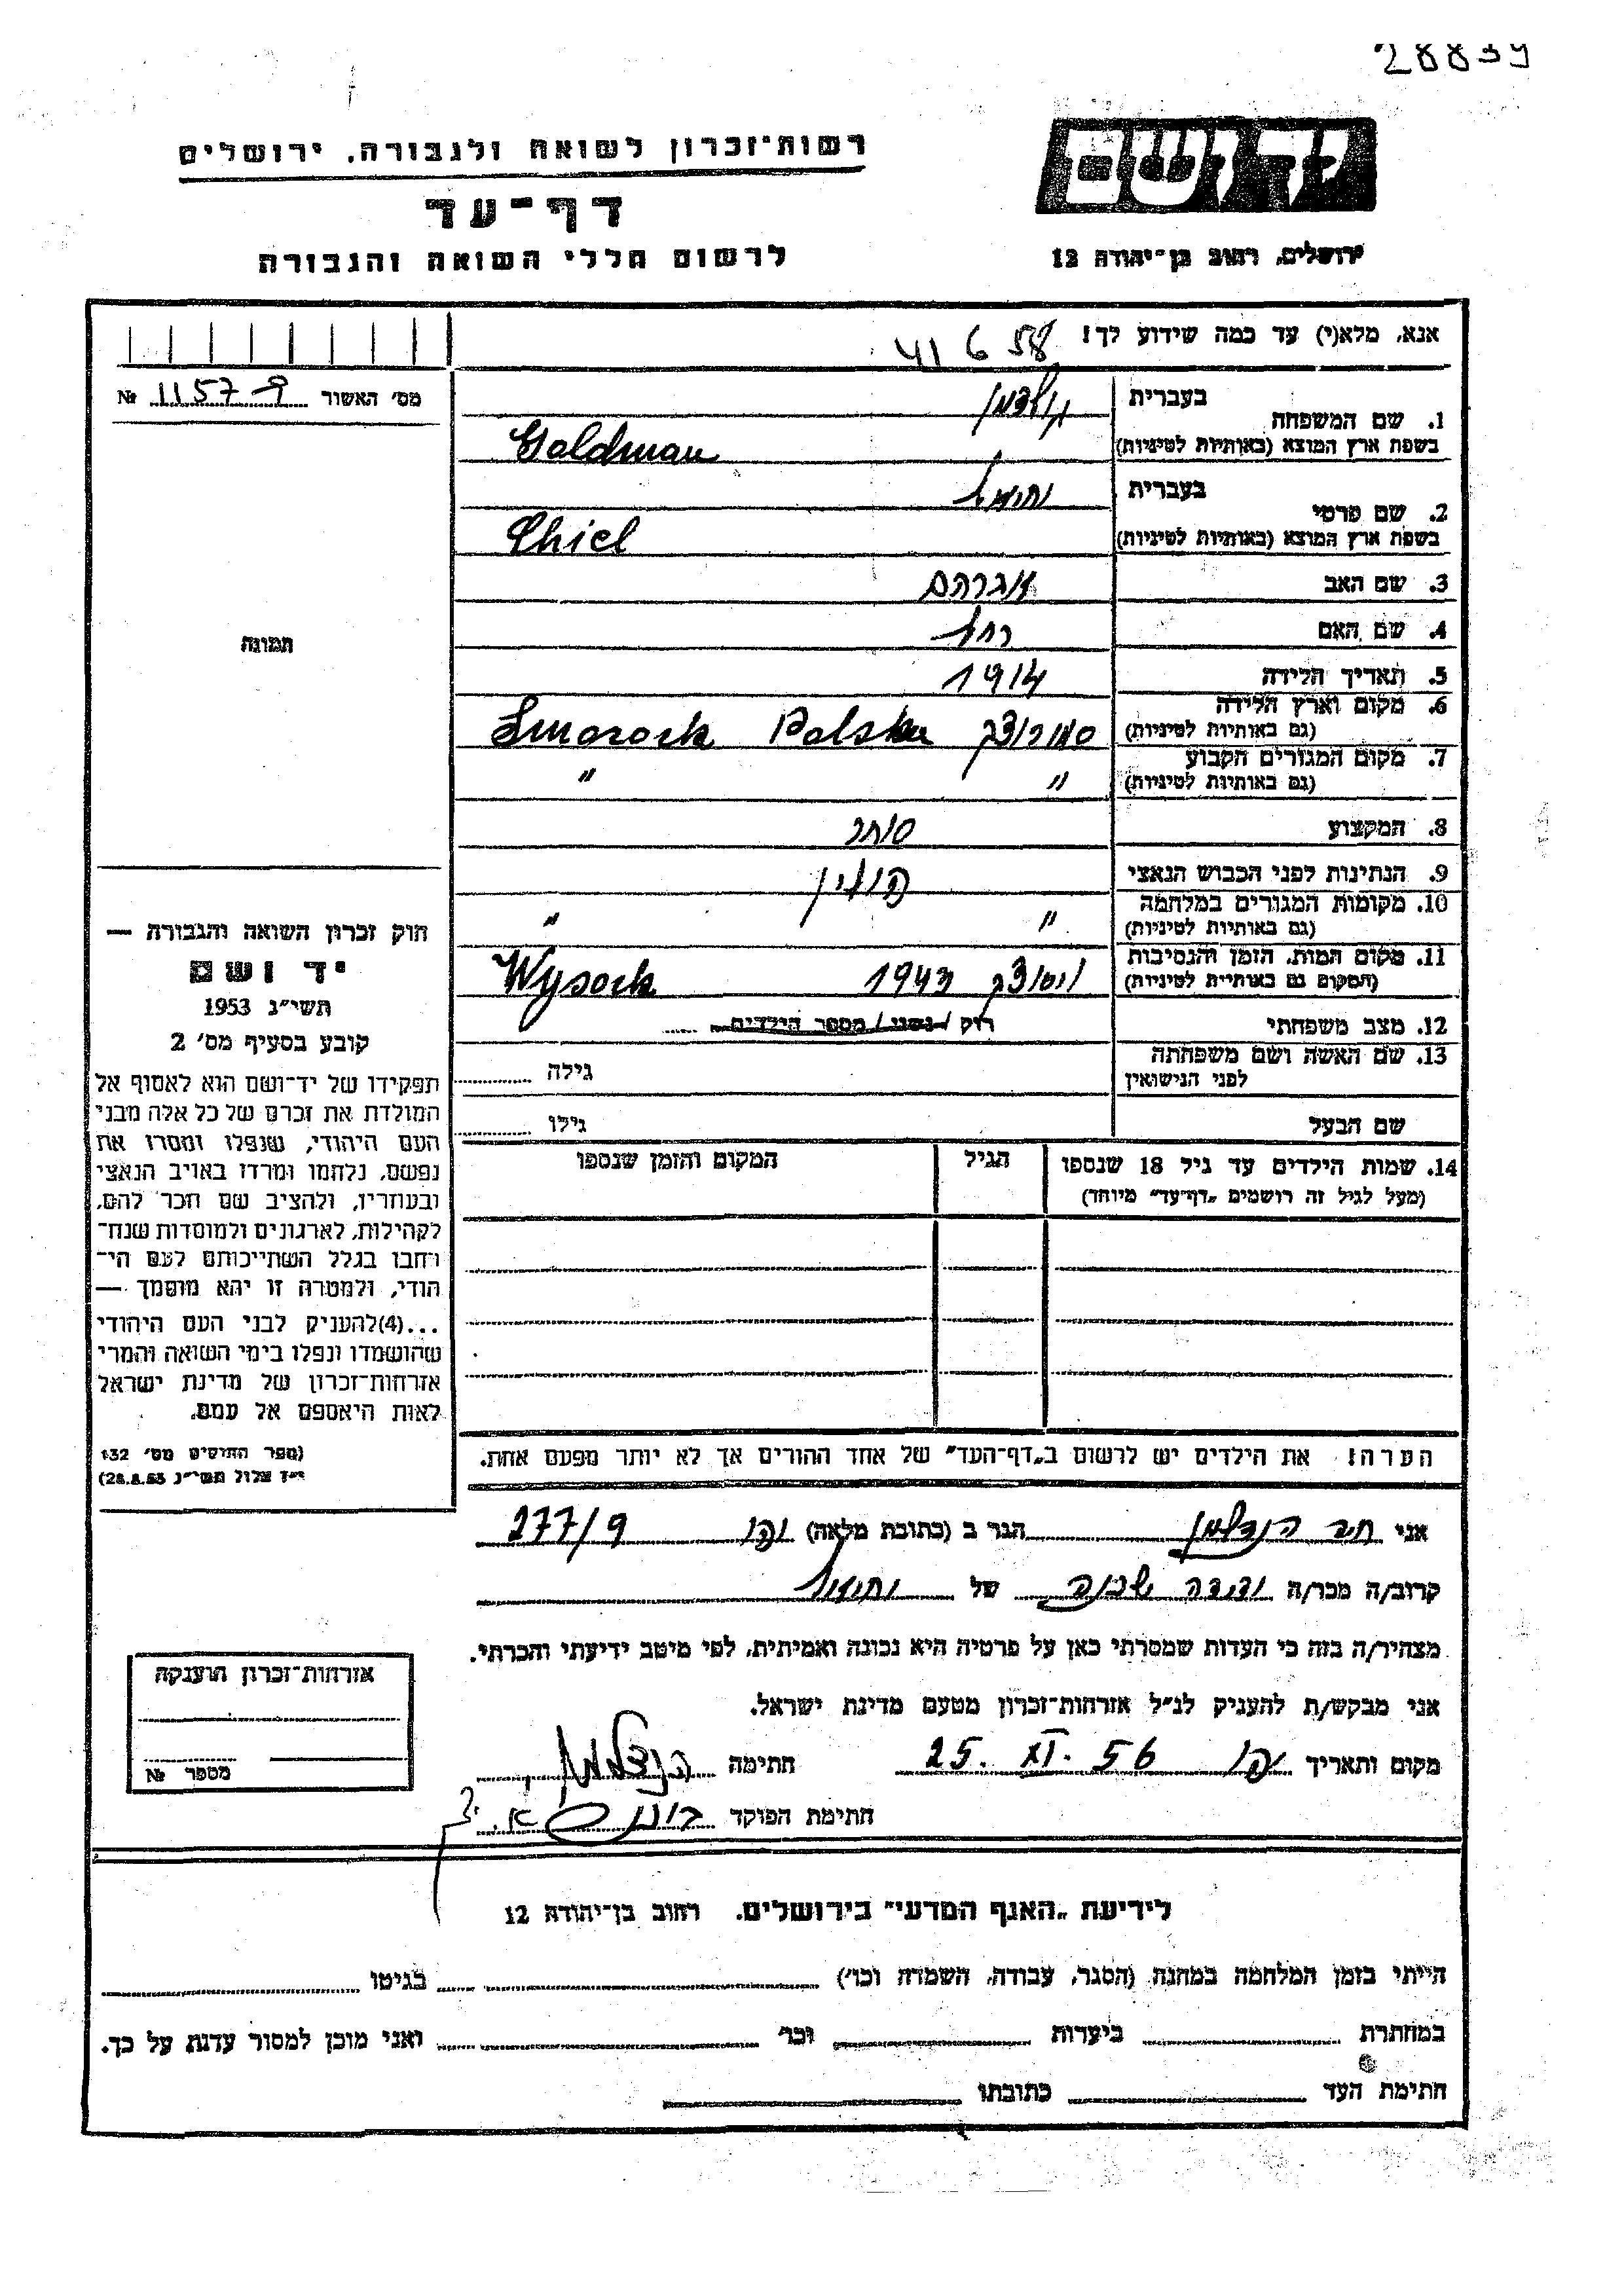 28839
יד ושם
רשות־זכרון לשואה ולגבורה, ירושלים
דף־עד
לרשום חללי השואה והגבורה
ירושלים, רחוב בן־יהודה 12
אנא, מלא(י) עד כמה שידוע לך!
מס׳ האשור № 11579
בעברית גולדמן
1. שם המשפחה
בשפת ארץ המוצא (באותיות לטיניות) Goldman
בעברית יחיאל
2. שם פרטי
בשפת ארץ המוצא (באותיות לטיניות) Chiel
3. שם האב אברהם
4. שם האם רחל
תמונה
5. תאריך הלידה 1914
6. מקום וארץ הלידה
(גם באותיות לטיניות) Smorock Polska
7. מקום המגורים הקבוע
(גם באותיות לטיניות) " "
8. המקצוע סוחר
9. הנתינות לפני הכבוש הנאצי פולין
10. מקומות המגורים במלחמה
(גם באותיות לטיניות) " "
11. מקום המות, הזמן והנסיבות
(המקום גם באותיות לטיניות) 1943 Wysock
12. מצב משפחתי רוק / נשוי / מספר הילדים
13. שם האשה ושם משפחתה
לפני הנישואין גילה
שם הבעל גילו
חוק זכרון השואה והגבורה —
יד ושם
תשי״ג 1953
קובע בסעיף מס׳ 2
תפקידו של יד־ושם הוא לאסוף אל
המולדת את זכרם של כל אלה מבני
העם היהודי, שנפלו ומסרו את
נפשם, נלחמו ומרדו באויב הנאצי
ובעוזריו, ולהציב שם וזכר להם,
לקהילות, לארגונים ולמוסדות שנח־
רחבו בגלל השתייכותם לעם הי־
הודי, ולמטרה זו יהא מוסמך —
...(4)להעניק לבני העם היהודי
שהושמדו ונפלו בימי השואה והמרי
אזרחות־זכרון של מדינת ישראל
לאות היאספם אל עמם.
(ספר החוקים מס׳ 132
י״ז אלול תשי״ג 28.8.53)
14. שמות הילדים עד גיל 18 שנספו הגיל המקום והזמן שנספו
(מעל לגיל זה רושמים „דף־עד״ מיוחד)
הערה! את הילדים יש לרשום ב„דף־העד״ של אחד ההורים אך לא יותר מפעם אחת.
אני הנדלמן הגר ב (כתובת מלאה) יפו 277/9
קרוב/ה מכר/ה ידידה שכנה של יחיאל
מצהיר/ה בזה כי העדות שמסרתי כאן על פרטיה היא נכונה ואמיתית, לפי מיטב ידיעתי והכרתי.
אני מבקש/ת להעניק לנ״ל אזרחות־זכרון מטעם מדינת ישראל.
מקום ותאריך יפו 25. XI. 56 חתימה הנדלמן
חתימת הפוקד
אזרחות־זכרון הוענקה
מספר №
לידיעת „האגף המדעי״ בירושלים. רחוב בן־יהודה 12
הייתי בזמן המלחמה במחנה (הסגר, עבודה, השמדה וכו׳) בגיטו
במחתרת ביערות וכו׳ ואני מוכן למסור עדות על כך.
חתימת העד כתובתו